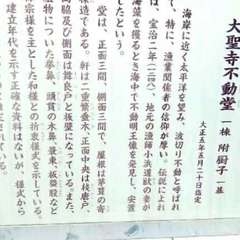 大聖寺不動堂 一棟 附厨子一基
大正五年五月二十日指定
海岸に近く太平洋を望み、波切り不動と呼ばれ
て、特に、漁業関係者の信仰が厚い。伝説によれ
ば、宝治二年(一二四八)地元の漁師小浜道獣の妻が
海藻を獲るとき海中で不動明王像を発見し、安置
したという。
堂は、正面三間、側面三間で、屋根は茅葺の寄
棟造である。軒は二重繁垂木、正面中央は桟唐戸、
両脇及び側面は舞良戸と板壁になっている。また、
物についた拳鼻、頭貫の木鼻、蟇股、板蟇股など
宗様を主とした和様との折衷様式を示している。
建立年代を示す正確な資料はないが、様式から